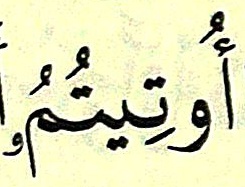 أُوتِيتُمُ